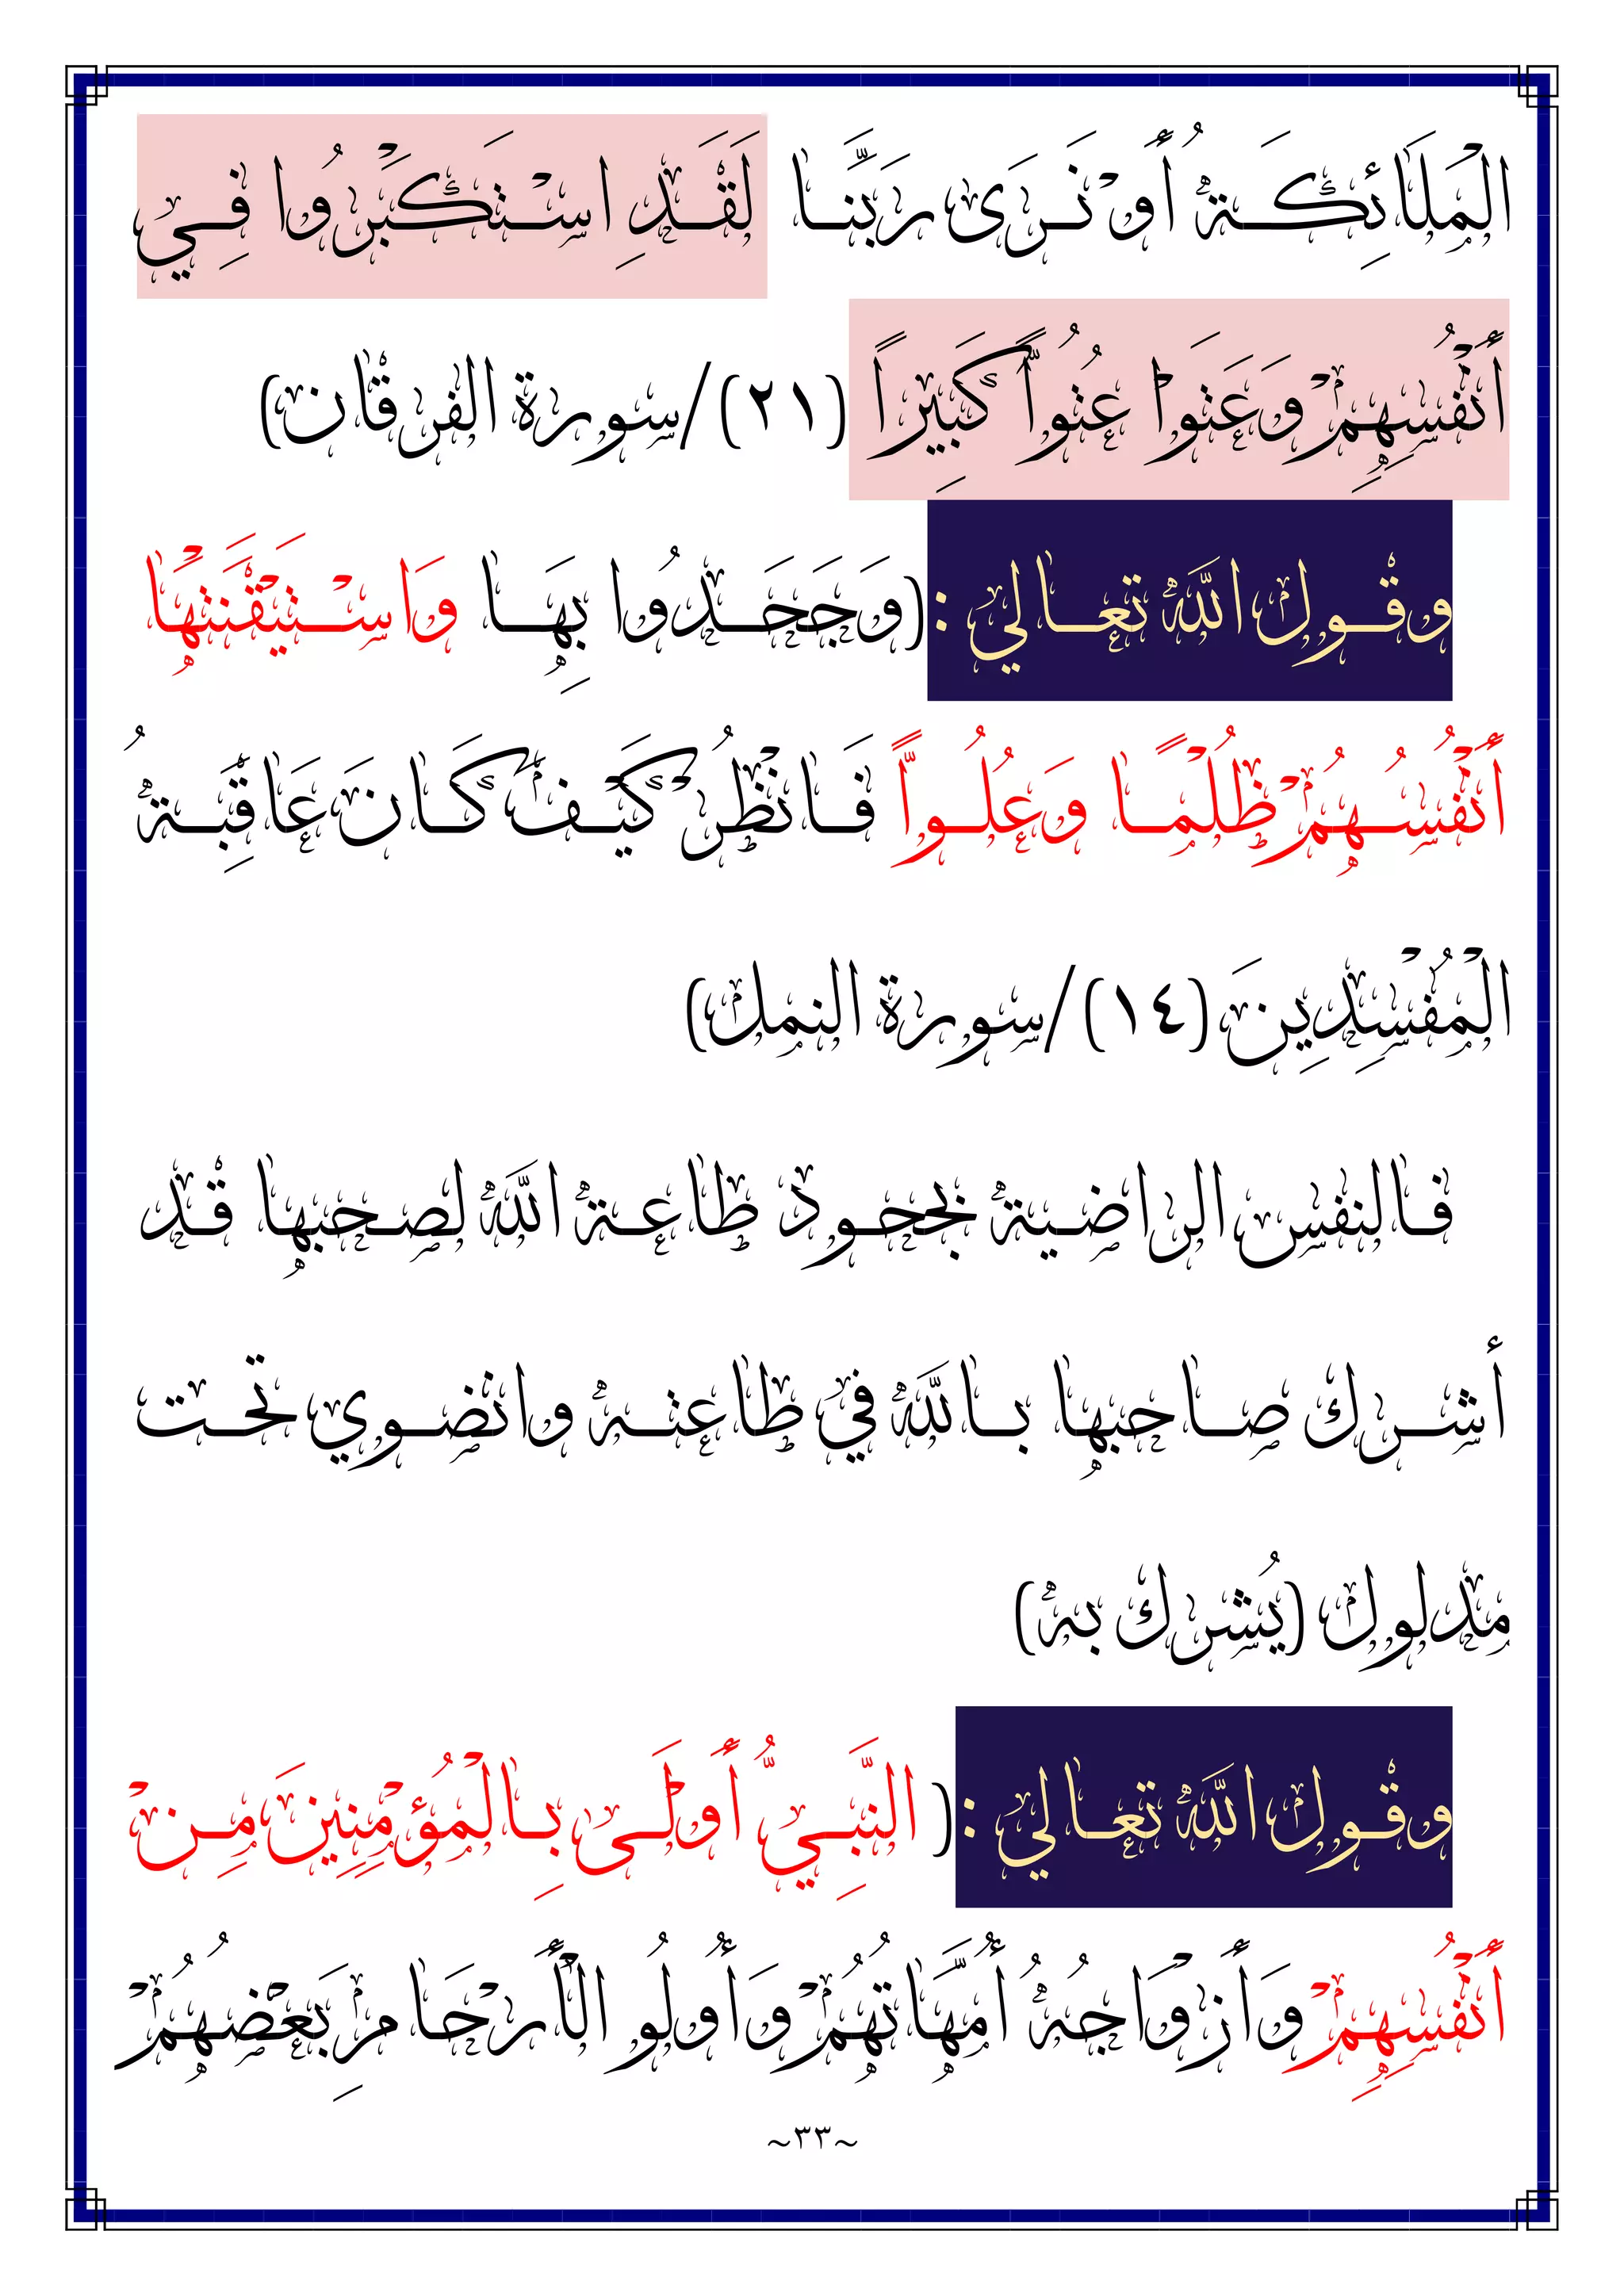 الْمَلَائِكَةُ أَوْ نَرَى رَبَّنَا لَقَدِ اسْتَكْبَرُوا فِي
أَنْفُسِهِمْ وَعَتَوْا عُتُوًّا كَبِيرًا (٢١) /سورة الفرقان)
وقول الله تعالي : (وَجَحَدُوا بِهَا وَاسْتَيْقَنَتْهَا
أَنْفُسُهُمْ ظُلْمًا وَعُلُوًّا فَانْظُرْ كَيْفَ كَانَ عَاقِبَةُ
الْمُفْسِدِينَ (١٤) /سورة النمل)
فالنفس الراضية بجحود طاعة الله لصحبها قد
أشرك صاحبها بالله في طاعته وانضوي تحت
مدلول (يُشرك به)
وقول الله تعالي : ( النَّبِيُّ أَوْلَى بِالْمُؤْمِنِينَ مِنْ
أَنْفُسِهِمْ وَأَزْوَاجُهُ أُمَّهَاتُهُمْ وَأُولُو الْأَرْحَامِ بَعْضُهُمْ
~٣٣~